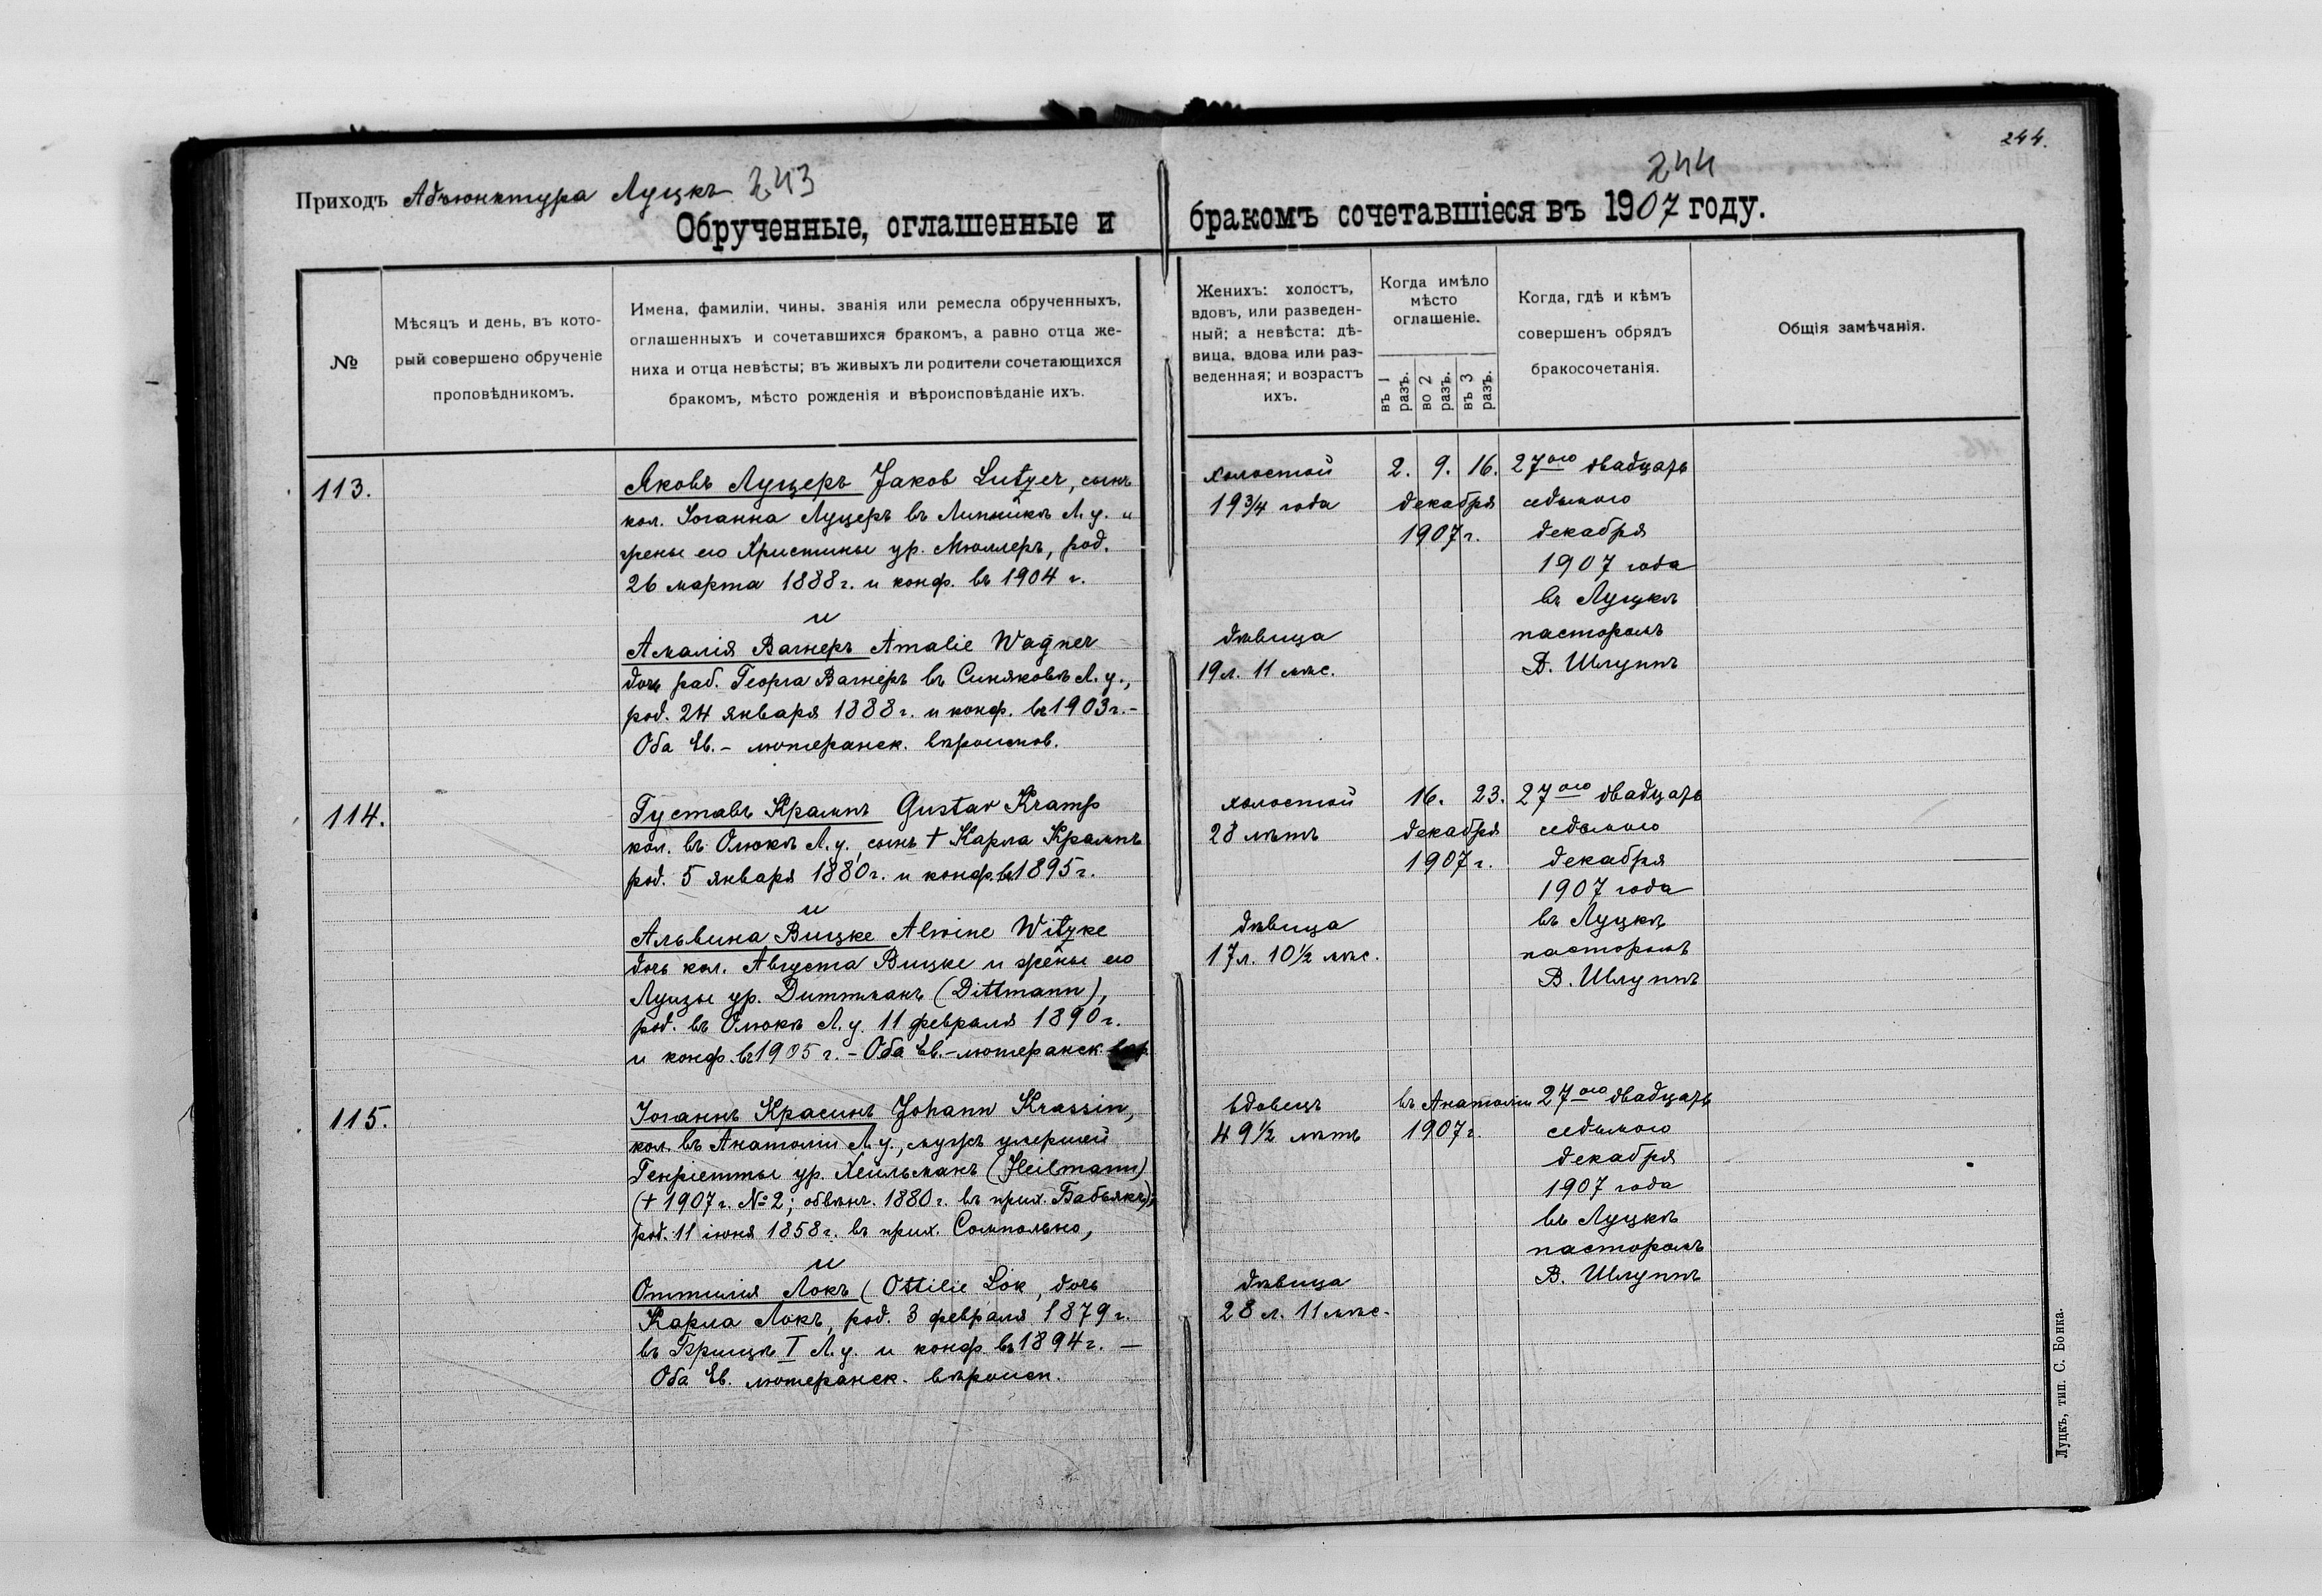 244.
Приходъ Адъюнктура Луцкъ 243
244
Обрученные, оглашенные и бракомъ сочетавшіеся въ 1907 году.
№
Мѣсяцъ и день, въ кото-
рый совершено обрученіе
проповѣдникомъ.
Имена, фамиліи, чины, званія или ремесла обрученныхъ,
оглашенныхъ и сочетавшихся бракомъ, а равно отца же-
ниха и отца невѣсты; въ живыхъ ли родители сочетающихся
бракомъ, мѣсто рожденія и вѣроисповѣданіе ихъ.
Женихъ: холостъ,
вдовъ, или разведен-
ный; а невѣста: дѣ-
вица, вдова или раз-
веденная; и возрастъ
ихъ.
Когда имѣло
мѣсто
оглашеніе.
въ 1
разъ.
во 2
разъ.
въ 3
разъ.
Когда, гдѣ и кѣмъ
совершенъ обрядъ
бракосочетанія.
Общія замѣчанія.
113.
Яковъ Луцеръ Jakob Lutzer, сынъ
кол. Іоганна Луцеръ въ Липникѣ Л. у. и
жены его Христины ур. Мюллеръ, род.
26 марта 1888 г. и конф. въ 1904 г.
и
Амалія Вагнеръ Amalie Wagner
дочь раб. Георга Вагнеръ въ Синяковѣ Л. у.,
род. 24 января 1888 г. и конф. въ 1903 г. –
Оба Ев. – лютеранск. вѣроиспов.
холостой
19 3/4 года
дѣвица
19 л. 11 мѣс.
2. 9. 16.
декабря
1907 г.
27ого двадцать
седьмого
декабря
1907 года
въ Луцкѣ
пасторомъ
В. Шлуппъ
114.
Густавъ Крампъ Gustav Kramp
кол. въ Олыкѣ Л. у., сынъ † Карла Крампъ
род. 5 января 1880 г. и конф. въ 1895 г.
и
Альвина Вицке Alwine Witzke
дочь кол. Августа Вицке и жены его
Луизы ур. Диттманъ (Dittmann),
род. въ Олыкѣ Л. у. 11 февраля 1890 г.
и конф. въ 1905 г. – Оба Ев. – лютеранск.
холостой
28 лѣтъ
дѣвица
17 л. 10 1/2 мѣс.
16. 23.
декабря
1907 г.
27ого двадцать
седьмого
декабря
1907 года
въ Луцкѣ
пасторомъ
В. Шлуппъ
115.
Іоганнъ Красинъ Johann Krassin,
кол. въ Анатоліи Л. у., мужъ умершей
Генріетты ур. Хейльманъ (Heilmann)
(† 1907 г. № 2; обвѣнч. 1880 г. въ прих. Бабьякъ),
род. 11 іюня 1858 г. въ прих. Сомпольно,
и
Оттилія Локъ (Ottilie Lok, дочь
Карла Локъ, род. 3 февраля 1879 г.
въ Брищѣ I Л. у. и конф. въ 1894 г. –
Оба Ев. лютеранск. вѣроисп.
вдовецъ
49 1/2 лѣтъ
дѣвица
28 л. 11 мѣс.
въ Анатоліи
1907 г.
27ого двадцать
седьмого
декабря
1907 года
въ Луцкѣ
пасторомъ
В. Шлуппъ
Луцкъ, тип. С. Бонка.